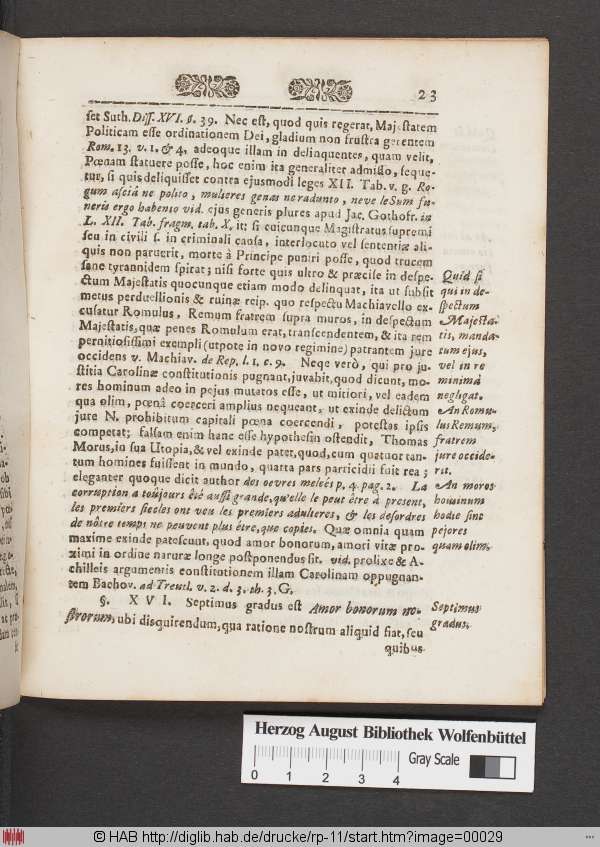 23
set Suth. Diss. XVI. §. 39. Nec est, quod quis regerat, Majestatem
Politicam esse ordinationem Dei, gladium non frustra gerentem
Rom. 13. v. 1. & 4, adeoque illam in delinquentes, quam velit,
Pœnam statuere posse, hoc enim ita generaliter admisso, seque-
tur, si quis deliquisset contra ejusmodi leges XII. Tab. v. g. Ro-
gum asciâ ne polito, mulieres genas ne radunto, neve leSum fu-
neris ergo habento vid. ejus generis plures apud Jac. Gothofr. in
L. XII. Tab. fragm. tab. X. it; si cuicunque Magistratus supremi
seu in civili s. in criminali causa, interlocuto vel sententiæ ali-
quis non paruerit, morte à Principe puniri posse, quod trucem
sane tyrannidem spirat; nisi forte quis ultro & præcise in despe-
ctum Majestatis quocunque etiam modo delinquat, ita ut subsit
metus perduellionis & ruinæ reip. quo respectu Machiavello ex-
cusatur Romulus, Remum fratrem supra muros, in despectum
Majestatis, quæ penes Romulum erat, transcendentem, & ita rem
pernitiosissimi exempli (utpote in novo regimine) patrantem jure
occidens v. Machiav. de Rep. l. 1. c. 9. Neqe verò, qui pro ju-
stitia Carolinæ constitutionis pugnant, juvabit, quod dicunt, mo-
res hominum adeo in pejus mutatos esse, ut mitiori, vel eadem
qua olim, pœnâ coerceri amplius nequeant, ut exinde delictum
jure N. prohibitum capitali pœna coercendi, potestas ipsis
competat; falsam enim hanc esse hypothesin ostendit, Thomas
Morus, in sua Utopia, & vel exinde patet, quod, cum quatuor tan-
tum homines fuissent in mundo, quarta pars particidii fuit rea;
eleganter quoque dicit author des oevres meleés p. 4. pag. 2. La
corruption a toûjours êté aussi grande, qu'elle le peut être à present,
les premiers siecles ont veu les premiers adulteres, & les desordres
de nôtre temps ne peuvent plus être, que copies. Quæ omnia quam
maxime exinde patescunt, quod amor bonorum, amori vitæ pro-
ximi in ordine naturæ longe postponendus sit. vid. prolixe & A-
chilleis argumentis constitutionem illam Carolinam oppugnan-
tem Bachov. ad Treutl. v. 2. d. 3. th. 3. G.
§. XVI. Septimus gradus est Amor bonorum no-
strorum, ubi disquirendum, qua ratione nostrum aliquid fiat, seu
quibus
Quid si
qui in de-
spectum
Majesta-
tis, manda-
tum ejus,
vel in re
minimâ
negligat.
An Romu-
lus Remum,
fratrem
jure occide-
rit.
An mores
hominum
hodie sint
pejores
quam olim.
Septimus
gradus.
Herzog August Bibliothek Wolfenbüttel
Gray Scale
0 1 2 3 4
© HAB http://diglib.hab.de/drucke/rp-11/start.htm?image=00029